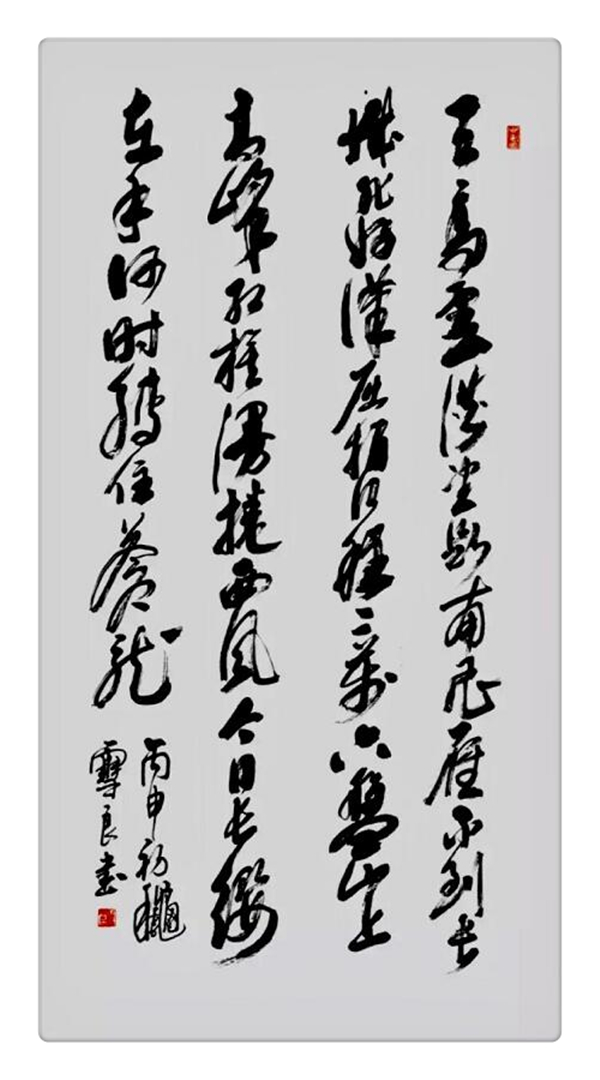 天高雲淡望断南飛雁不到长
城非好漢屈指行程二萬六盤山上
高峰红旗漫捲西風今日长纓
在手何时縛住蒼龍
丙申初龝
雪良書